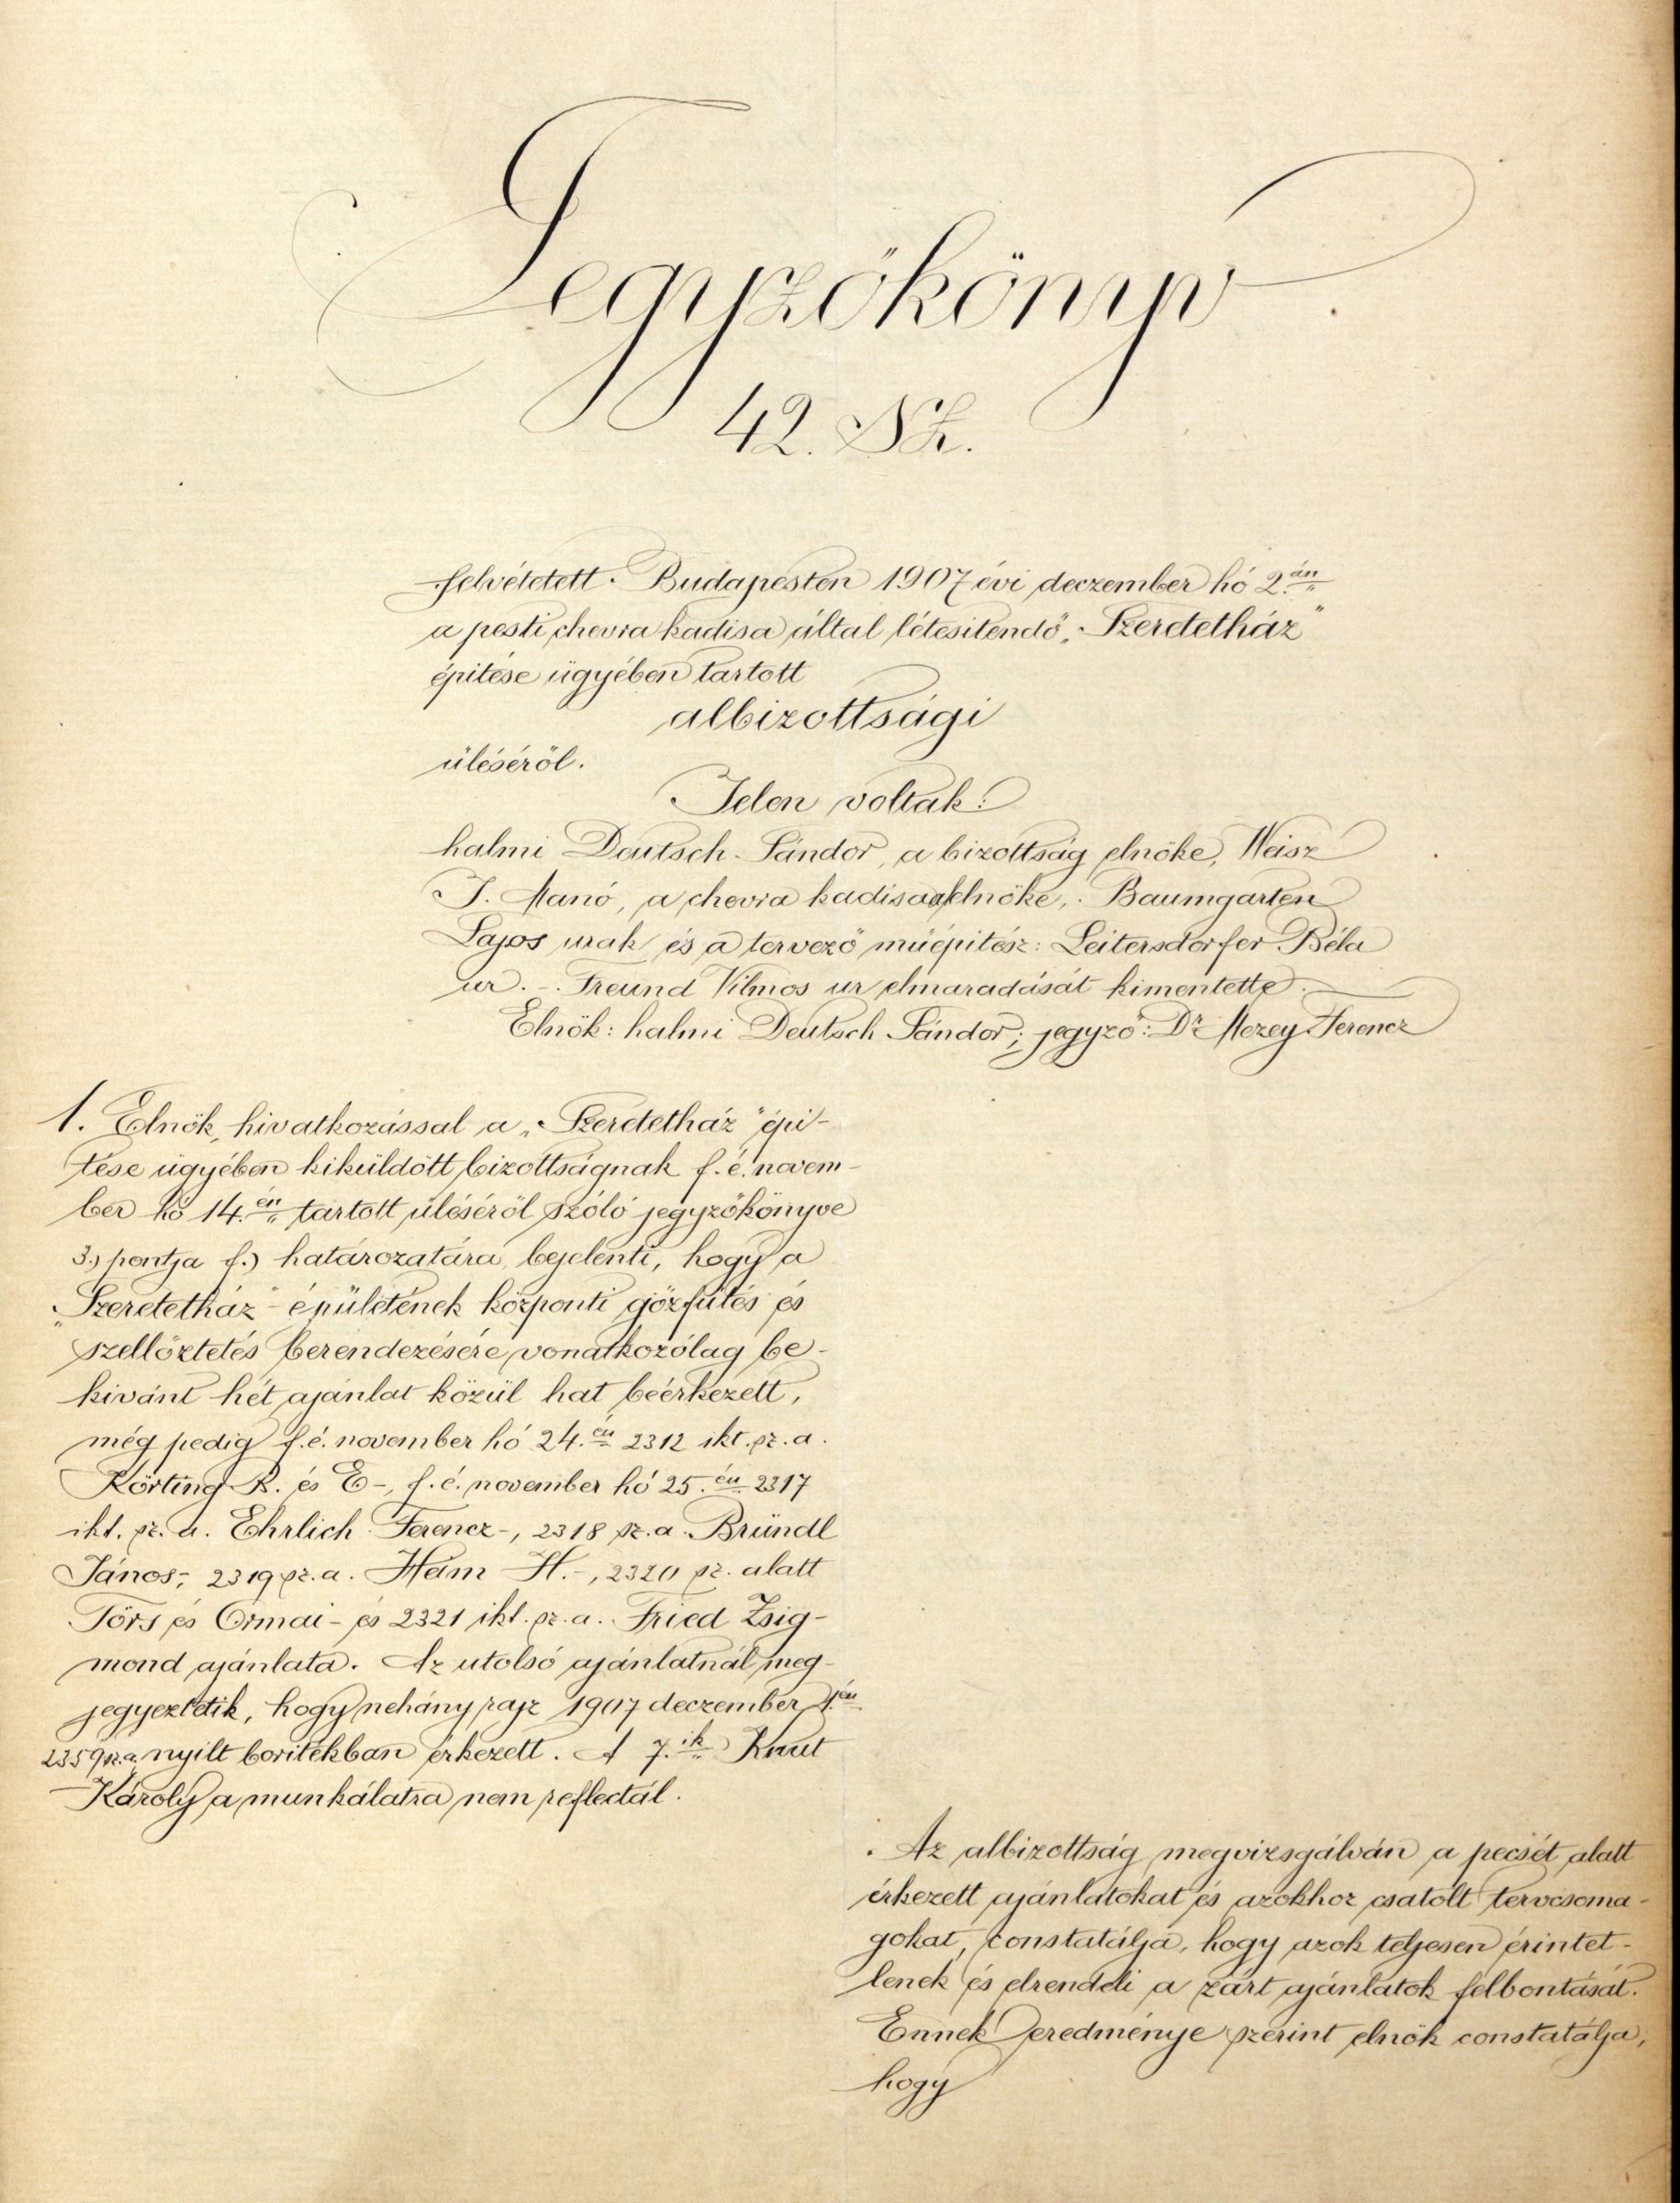 Jegyzőkönyv
42. Sz.
felvétetett Budapesten 1907 évi deczember hó 2.án
a pesti chevra kadisa által létesitendő „Szeretetház"
épitése ügyében tartott
albizottsági
üléséről.
Jelen voltak:
halmi Deutsch Sándor, a bizottság elnöke, Weisz
J. Manó, a chevra kadisa elnöke, Baumgarten
Lajos urak és a tervező műépitész: Leitersdorfer Béla
ur. - Freund Vilmos ur elmaradását kimentette.
Elnök: halmi Deutsch Sándor; jegyző: Dr Mezey Ferencz
1. Elnök, hivatkozással a „Szeretetház" épi-
tése ügyében kiküldött bizottságnak f. é. novem-
ber hó 14.én tartott üléséről szóló jegyzőkönyve
3.) pontja f.) határozatára, bejelenti, hogy a
„Szeretetház" épületének központi gőzfűtés és
szellőztetés berendezésére vonatkozólag be-
kivánt hét ajánlat közül hat beérkezett,
még pedig f. é. november hó 24.én 2312 ikt. sz. a.
Körting R. és E-, f. é. november hó 25.én 2317
ikt. sz. a. Ehrlich Ferencz-, 2318 sz. a. Bründl
János-, 2319 sz. a. Heim H.-, 2320 sz. alatt
Törs és Ormai- és 2321 ikt. sz. a. Fried Zsig-
mond ajánlata. Az utolsó ajánlatnál meg-
jegyeztetik, hogy nehány rajz 1907 deczember 1.én
2359 sz. a. nyilt boritékban érkezett. A 7.ik Knut
Károly a munkálatra nem reflectál.
Az albizottság megvizsgálván a pecsét alatt
érkezett ajánlatokat és azokhoz csatolt tervcsoma-
gokat, constatálja, hogy azok teljesen érintet-
lenek és elrendeli a zárt ajánlatok felbontását.
Ennek eredménye szerint elnök constatálja,
hogy